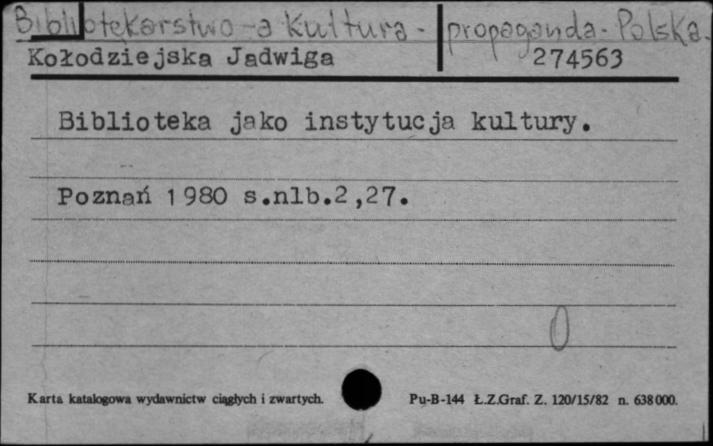 Bibliotekarstwo - a Kultura - propaganda - Polska.
Kołodziejska Jadwiga 274563
Biblioteka jako instytucja kultury.
Poznań 1980 s.nlb.2,27.
0
Karta katalogowa wydawnictw ciągłych i zwartych. Pu-B-144 Ł.Z.Graf. Z. 120/15/82 n. 638000.